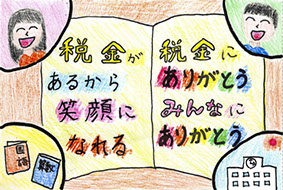 税金が
あるから
笑顔に
なれる
税金に
ありがとう
みんなに
ありがとう
国語
算数